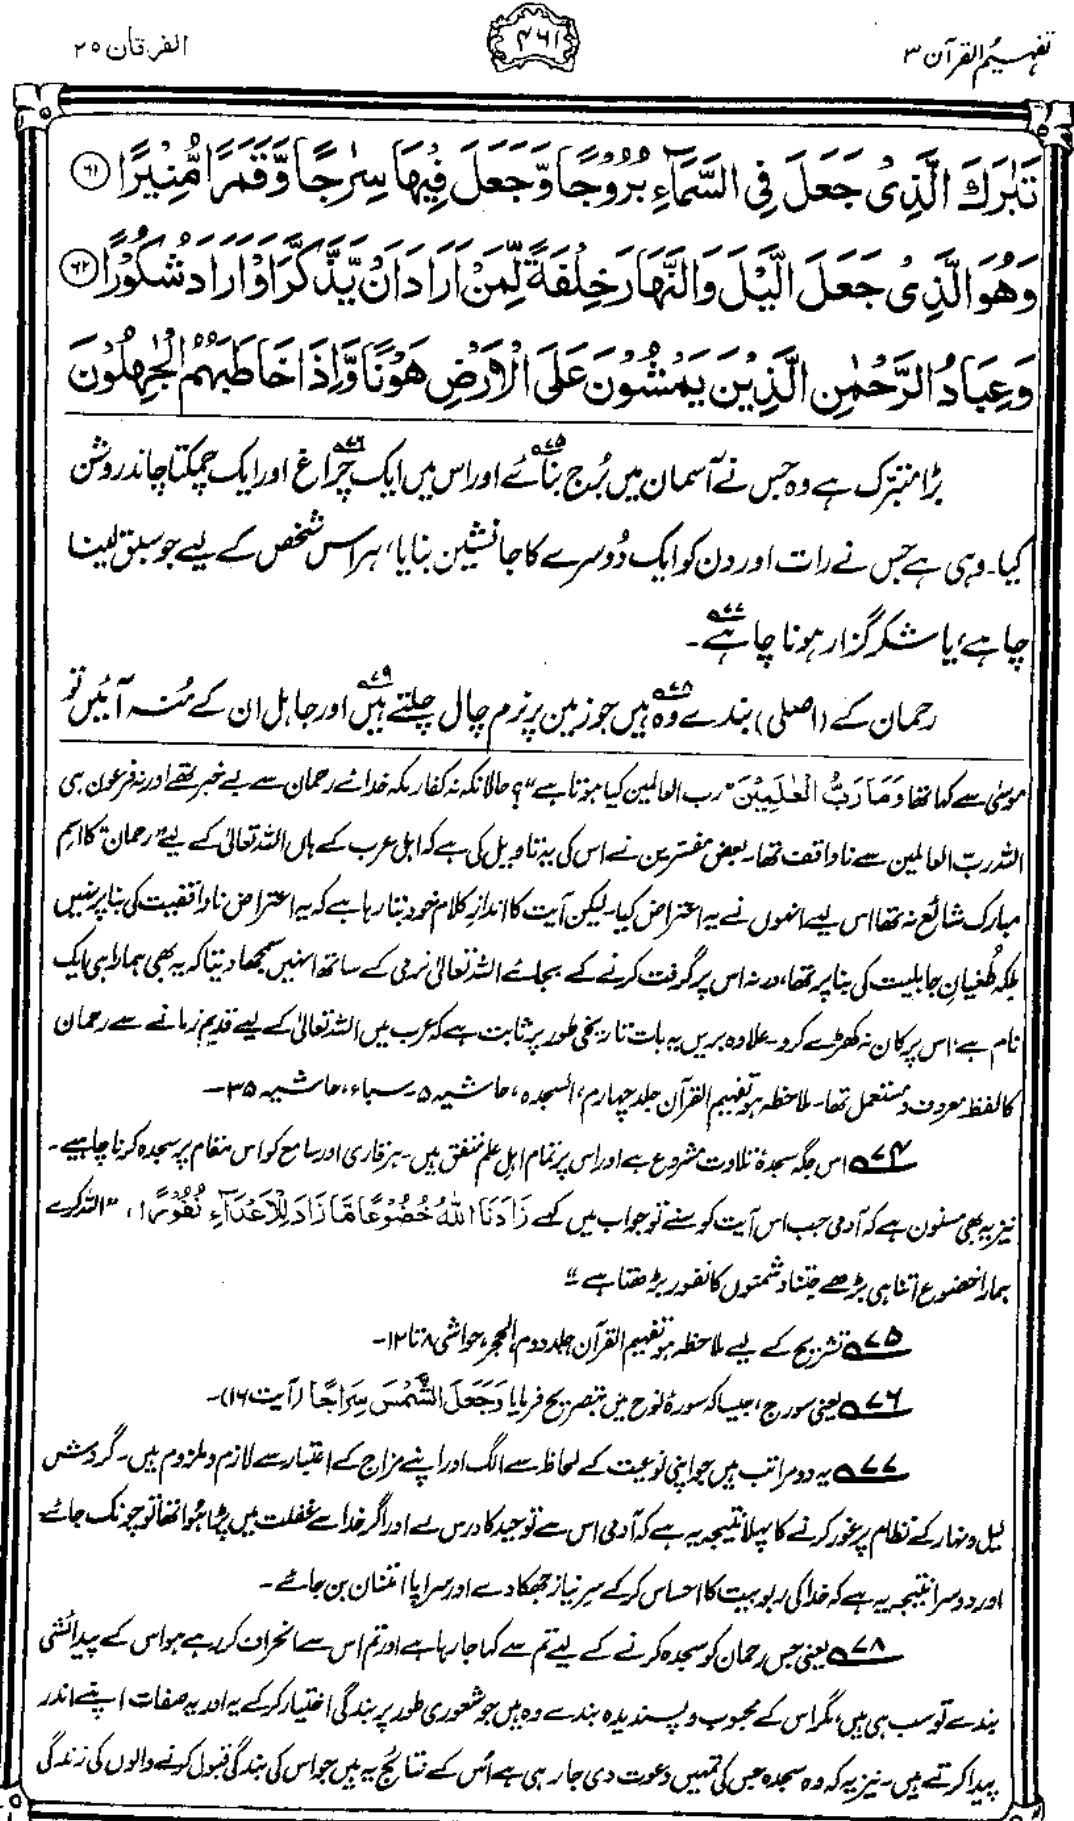 تفہیم القرآن ۳
۴۶۱
الفرقان ۲۵
تَبٰرَكَ الَّذِیْ جَعَلَ فِی السَّمَآءِ بُرُوْجًا وَّجَعَلَ فِیْهَا سِرٰجًا وَّقَمَرًا مُّنِیْرًا ﴿۶۱﴾
وَهُوَ الَّذِیْ جَعَلَ الَّیْلَ وَالنَّهَارَ خِلْفَةً لِّمَنْ اَرَادَ اَنْ یَّذَّكَّرَ اَوْ اَرَادَ شُكُوْرًا ﴿۶۲﴾
وَعِبَادُ الرَّحْمٰنِ الَّذِیْنَ یَمْشُوْنَ عَلَی الْاَرْضِ هَوْنًا وَّاِذَا خَاطَبَهُمُ الْجٰهِلُوْنَ
بڑا متبرک ہے وہ جس نے آسمان میں بُرج بنائے۷۵ اور اس میں ایک چراغ۷۶ اور ایک چمکتا چاند روشن
کیا۔ وہی ہے جس نے رات اور دن کو ایک دُوسرے کا جانشین بنایا، ہر اس شخص کے لیے جو سبق لینا
چاہے، یا شکر گزار ہونا چاہے۷۷۔
رحمان کے (اصلی) بندے وہ۷۸ ہیں جو زمین پر نرم چال چلتے ہیں۷۹ اور جاہل ان کے مُنہ آئیں تو
موسیٰ سے کہا تھا وَمَا رَبُّ الْعٰلَمِیْنَ ”رب العالمین کیا ہوتا ہے“؟ حالانکہ نہ کفار مکہ خدائے رحمان سے بے خبر تھے اور نہ فرعون ہی
اللہ ربّ العالمین سے ناواقف تھا۔ بعض مفسرین نے اس کی یہ تاویل کی ہے کہ اہل عرب کے ہاں اللہ تعالیٰ کے لیے ”رحمان“ کا اسم
مبارک شائع نہ تھا اس لیے انہوں نے یہ اعتراض کیا۔ لیکن آیت کا اندازِ کلام خود بتا رہا ہے کہ یہ اعتراض ناواقفیت کی بنا پر نہیں
بلکہ طُغیانِ جاہلیت کی بنا پر تھا، ورنہ اس پر گرفت کرنے کے بجائے اللہ تعالیٰ نرمی کے ساتھ انہیں سمجھا دیتا کہ یہ بھی ہمارا ہی ایک
نام ہے، اس پر کان نہ کھڑے کرو۔ علاوہ بریں یہ بات تاریخی طور پر ثابت ہے کہ عرب میں اللہ تعالیٰ کے لیے قدیم زمانے سے رحمان
کا لفظ معروف و مستعمل تھا۔ ملاحظہ ہو تفہیم القرآن جلد چہارم، السجدہ، حاشیہ ۵۔ سباء، حاشیہ ۳۵۔
۷۴ اس جگہ سجدۂ تلاوت مشروع ہے اور اس پر تمام اہل علم متفق ہیں۔ ہر قاری اور سامع کو اس مقام پر سجدہ کرنا چاہیے۔
نیز یہ بھی مسنون ہے کہ آدمی جب اس آیت کو سنے تو جواب میں کہے زَادَنَا اللّٰهُ خُضُوْعًا مَّا زَادَ لِلْاَعْدَآءِ نُفُوْرًا، ”اللہ کرے
ہمارا خضوع اتنا ہی بڑھے جتنا دشمنوں کا نفور بڑھتا ہے“
۷۵ تشریح کے لیے ملاحظہ ہو تفہیم القرآن جلد دوم، الحجر، حواشی ۸ تا ۱۲۔
۷۶ یعنی سورج، جیسا کہ سورۂ نوح میں بتصریح فرمایا وَجَعَلَ الشَّمْسَ سِرَاجًا (آیت ۱۶)۔
۷۷ یہ دو مراتب ہیں جو اپنی نوعیت کے لحاظ سے الگ اور اپنے مزاج کے اعتبار سے لازم و ملزوم ہیں۔ گردش
لیل و نہار کے نظام پر غور کرنے کا پہلا نتیجہ یہ ہے کہ آدمی اس سے توحید کا درس لے اور اگر خدا سے غفلت میں پڑا ہُوا تھا تو چونک جائے
اور دوسرا نتیجہ یہ ہے کہ خدا کی ربوبیت کا احساس کر کے سرِ نیاز جھکا دے اور سراپا امتنان بن جائے۔
۷۸ یعنی جس رحمان کو سجدہ کرنے کے لیے تم سے کہا جا رہا ہے اور تم اس سے انحراف کر رہے ہو اس کے پیدائشی
بندے تو سب ہی ہیں، مگر اس کے محبوب و پسندیدہ بندے وہ ہیں جو شعوری طور پر بندگی اختیار کر کے یہ اور یہ صفات اپنے اندر
پیدا کرتے ہیں۔ نیز یہ کہ وہ سجدہ جس کی تمہیں دعوت دی جا رہی ہے اُس کے نتائج یہ ہیں جو اس کی بندگی قبول کرنے والوں کی زندگی